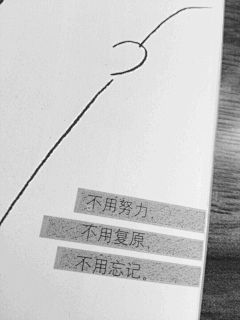 不用努力、
不用复原、
不用忘记。